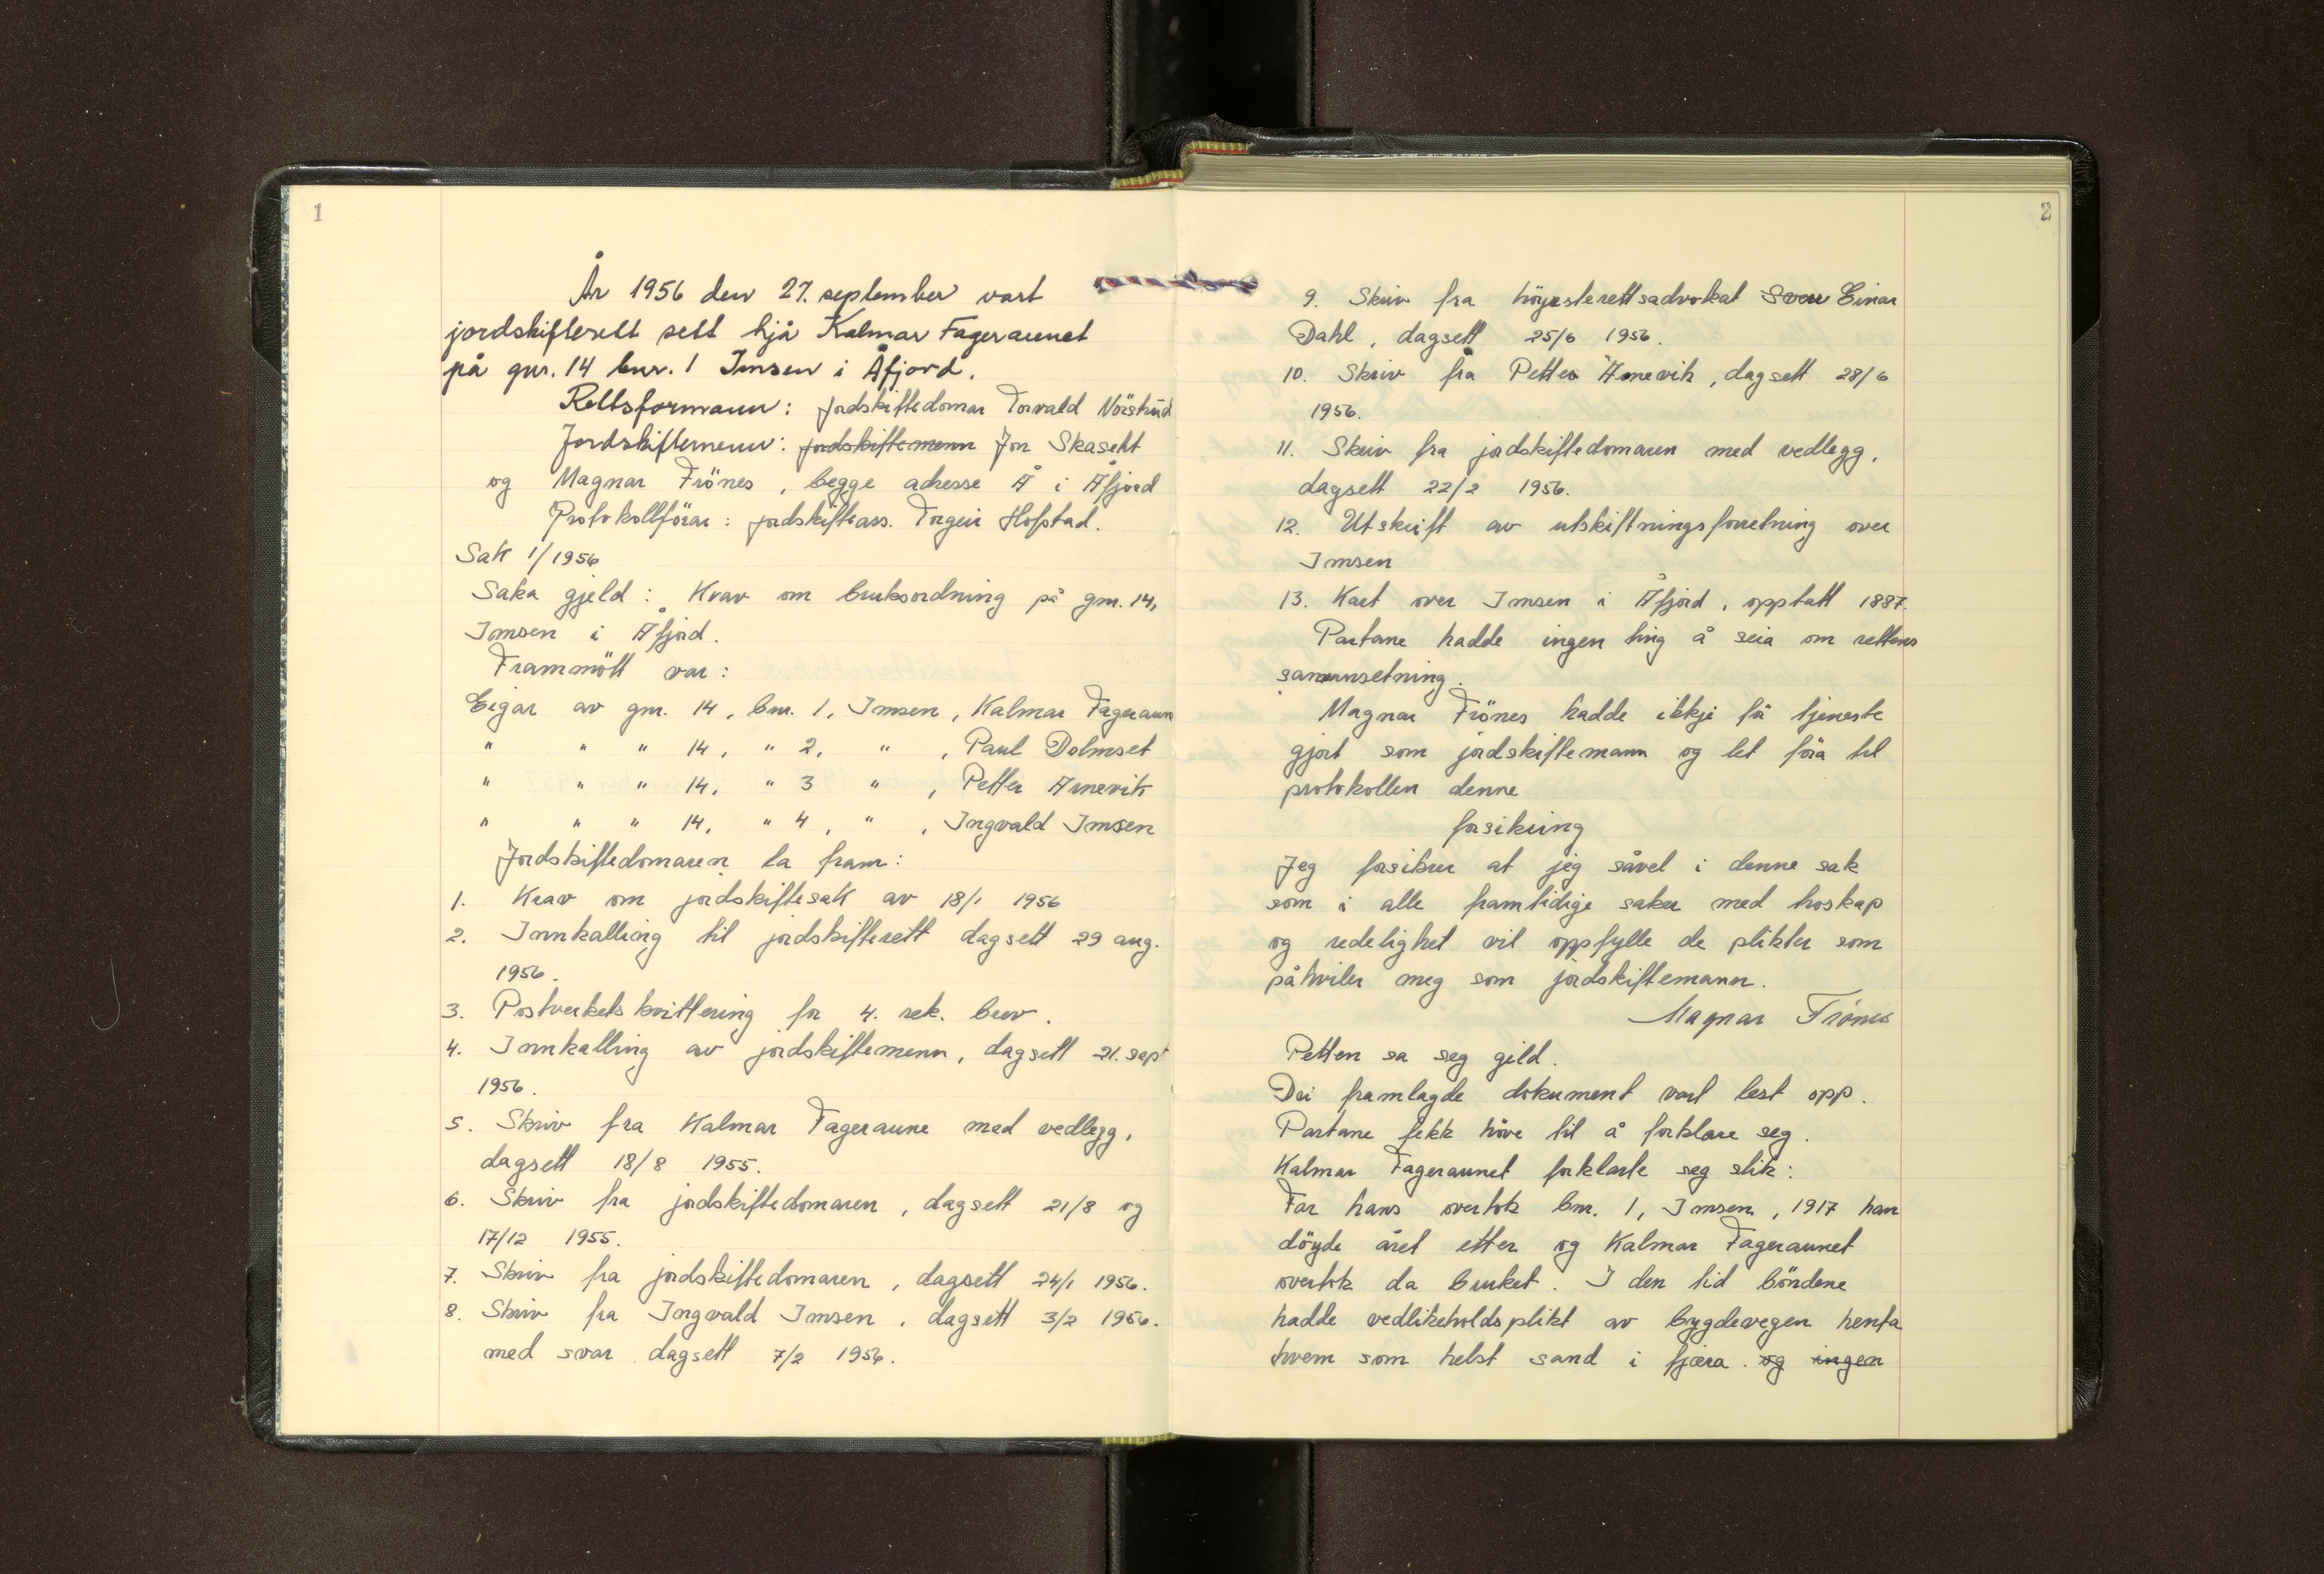 1
År 1956 den 27. september vart
jordskifterett sett hjå Kalmar Fageraunet
på gnr. 14 bnr. 1 Imsen i Åfjord.
Rettsformann: jordskiftedomar Torvald
Jordskiftemenn: jordskiftemenn Jon Skaseht
og Magnar Frönes, begge adresse Å i Åfjord
Protokollförar: jordskifteass. Torgeir Hofstad.
Sak 1/1956
Saka gjeld: Krav om bruksordning på gnr. 14,
Imsen i Åfjord.
Frammött var:
Eigar av gnr. 14, bnr. 1, Imsen, Kalmar Fageraun
" " " 14, " 2, " , Paul Dolmset
" " " 14, " 3 " , Petter Arnevik
" " " 14, " 4, " , Ingvald Imsen
Jordskiftedomaren la fram:
1. Krav om jordskiftesak av 18/1 1956
2. Innkalling til jordskifterett dagsett 29 aug.
1956.
3. Postverkets kvittering for 4. rek. brev.
4. Innkalling av jordskiftemenn, dagsett 21. sept
1956.
5. Skriv fra Kalmar Fageraune med vedlegg,
dagsett 18/8 1955.
6. Skriv fra jordskiftedomaren, dagsett 21/8 og
17/12 1955.
7. Skriv fra jordskiftedomaren, dagsett 24/1 1956.
8. Skriv fra Ingvald Imsen, dagsett 3/2 1956.
med svar dagsett 7/2 1956.
2
9. Skriv fra höyesterettsadvokat Einar
Dahl, dagsett 25/6 1956.
10. Skriv frå Petter Arnevik, dagsett 28/6
1956.
11. Skriv fra jordskiftedomaren med vedlegg,
dagsett 22/2 1956.
12. Utskrift av utskiftningsforretning over
Imsen
13. Kart over Imsen i Åfjord, opptatt 1887.
Partane hadde ingen ting å seia om rettens
samansetning.
Magnar Frönes hadde ikkje fö tjeneste
gjort som jordskiftemann og let föra til
protokollen denne
forsikring
Jeg forsikrer at jeg såvel i denne sak
som i alle framtidige saker med troskap
og redelighet vil oppfylle de plikter som
påhviler meg som jordskiftemann.
Magnar Frönes
Retten sa seg gild.
Dei framlagde dokument vart lest opp.
Partane fekk höve til å forklare seg.
Kalmar Fageraunet forklarte seg slik:
Far hans overtok bnr. 1, Imsen, 1917 han
döyde året etter og Kalmar Fageraunet
overtok da bruket. I den tid böndene
hadde vedlikeholdsplikt av bygdevegen henta
hvem som helst sand i fjæra. og ingen